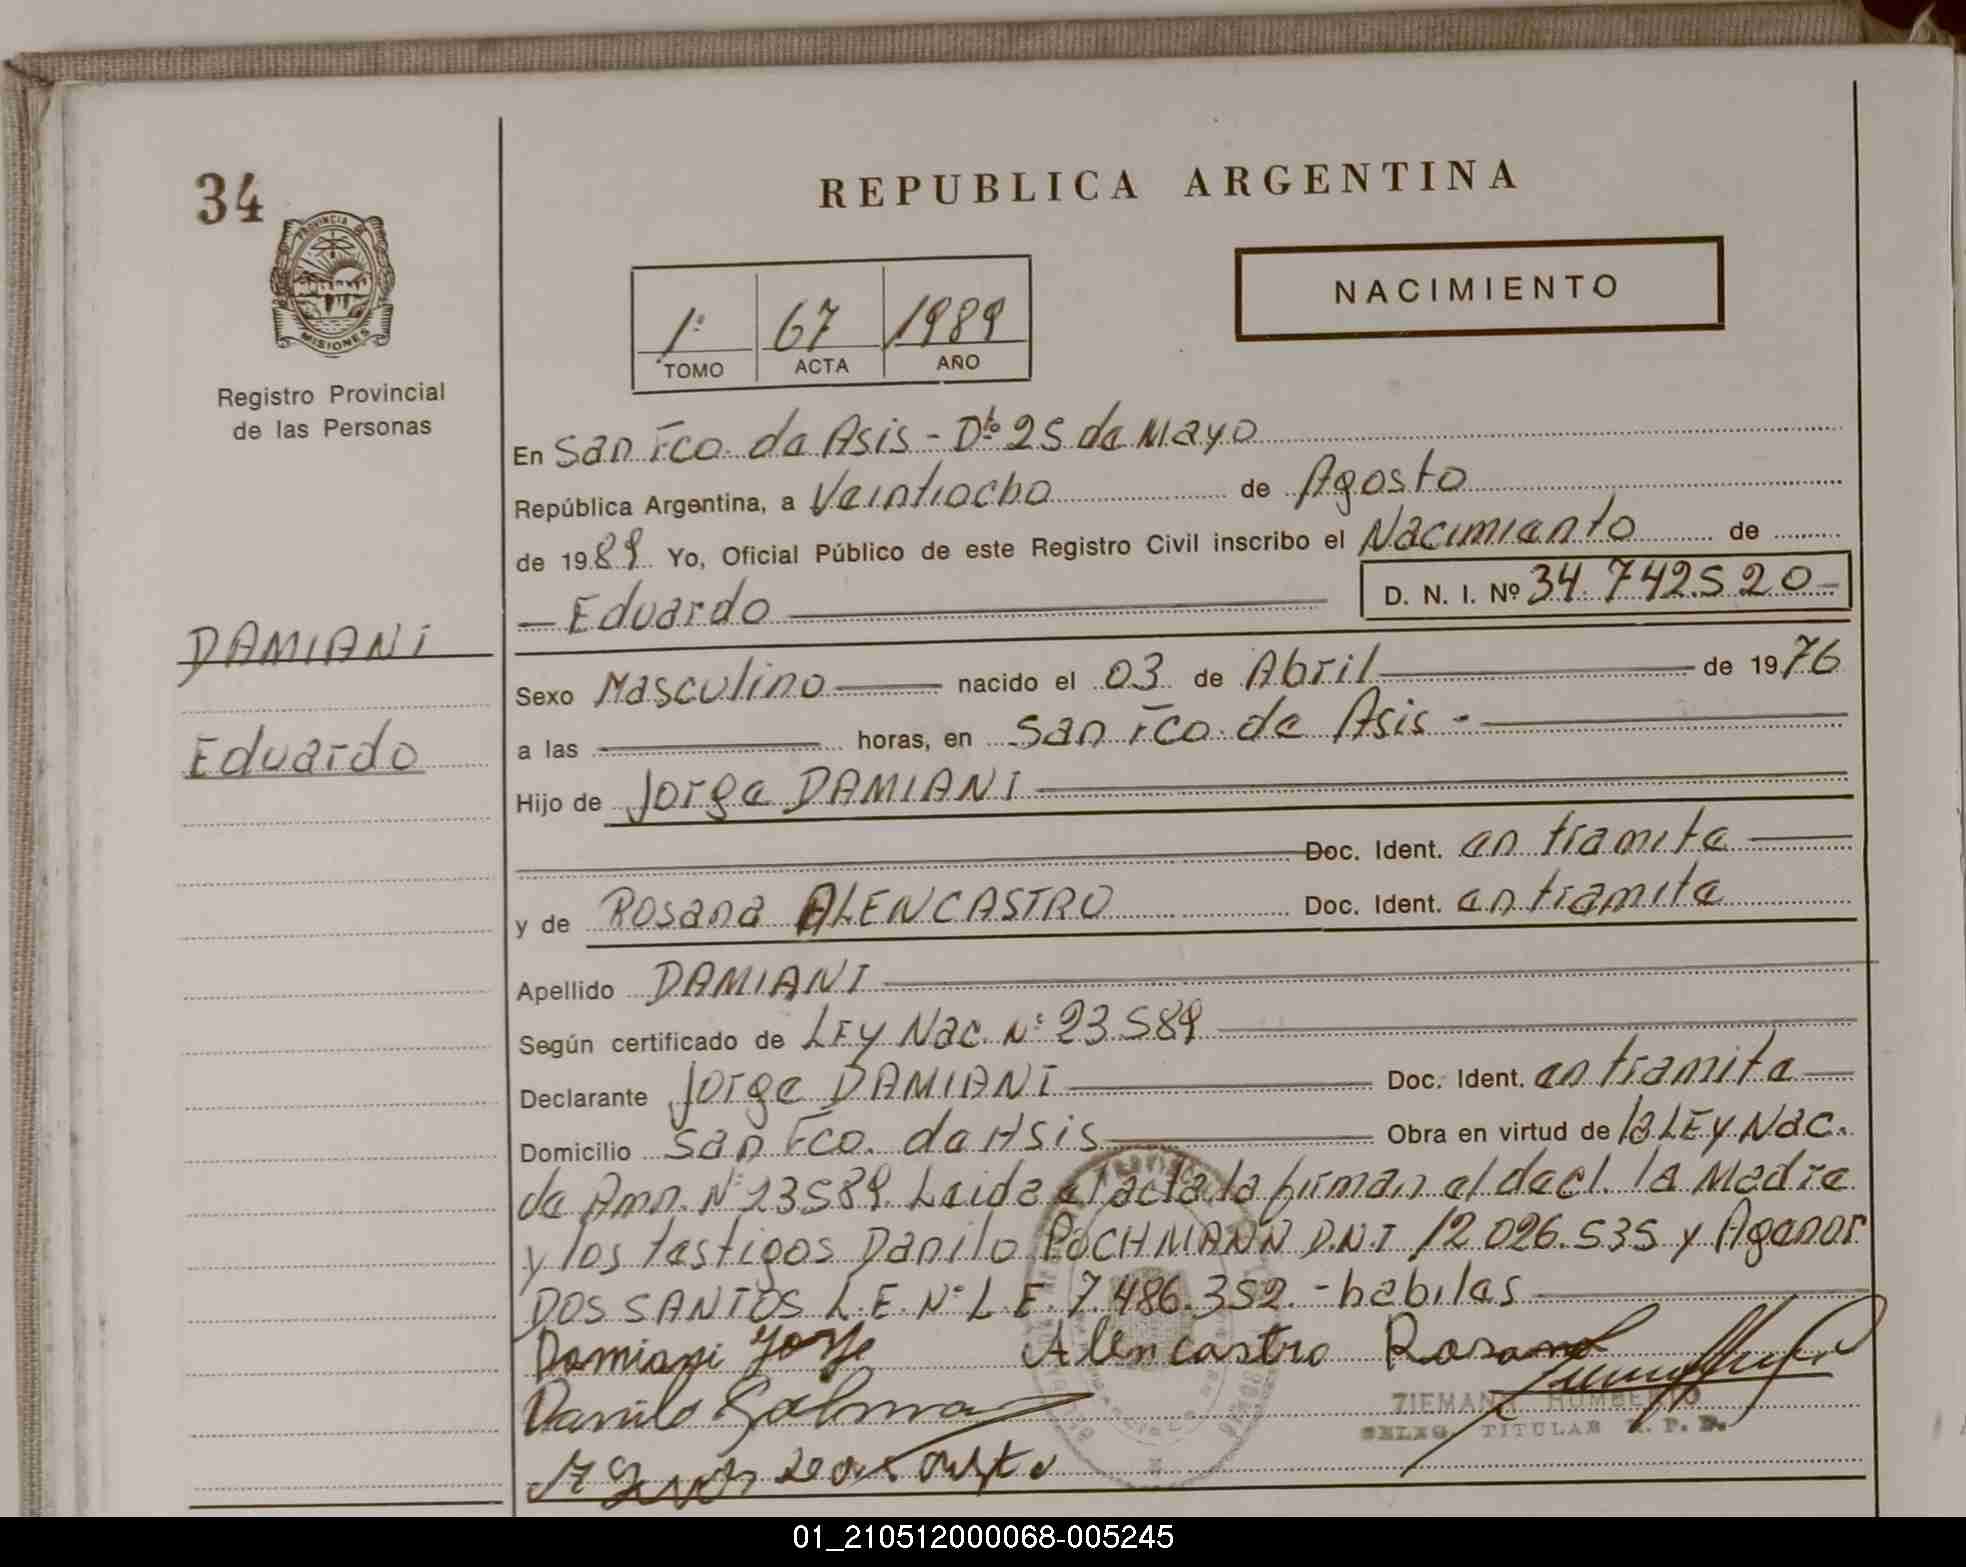 34
REPUBLICA ARGENTINA
PROVINCIA DE
MISIONES
NACIMIENTO
1º 67 1989
TOMO ACTA AÑO
Registro Provincial
de las Personas
En San Fco. de Asis - Dto 25 de Mayo
República Argentina, a Veintiocho de Agosto
de 1989 Yo, Oficial Público de este Registro Civil inscribo el Nacimiento de
Eduardo D. N. I. Nº 34.742.520
DAMIANI
Eduardo
Sexo Masculino nacido el 03 de Abril de 1976
a las horas, en San Fco. de Asis -
Hijo de Jorge DAMIANI
Doc. Ident. en tramite
y de Rosana ALENCASTRO Doc. Ident. en tramite
Apellido DAMIANI
Según certificado de LEY Nac. Nº 23589
Declarante Jorge DAMIANI Doc. Ident. en tramite
Domicilio San Fco. de Asis Obra en virtud de la LEY Nac.
de Amn. Nº 23589. Leida el acta la firman el decl. la Madre
y los testigos Danilo POCHMANN D.N.I 12.026.535 y Agenor
DOS SANTOS L.E. Nº L.E. 7.486.352. - habiles
Damiani Jorge Alencastro Rosana
Danilo
ZIEMANN HUMBERTO
DELEG. TITULAR R. P. P.
01_210512000068-005245